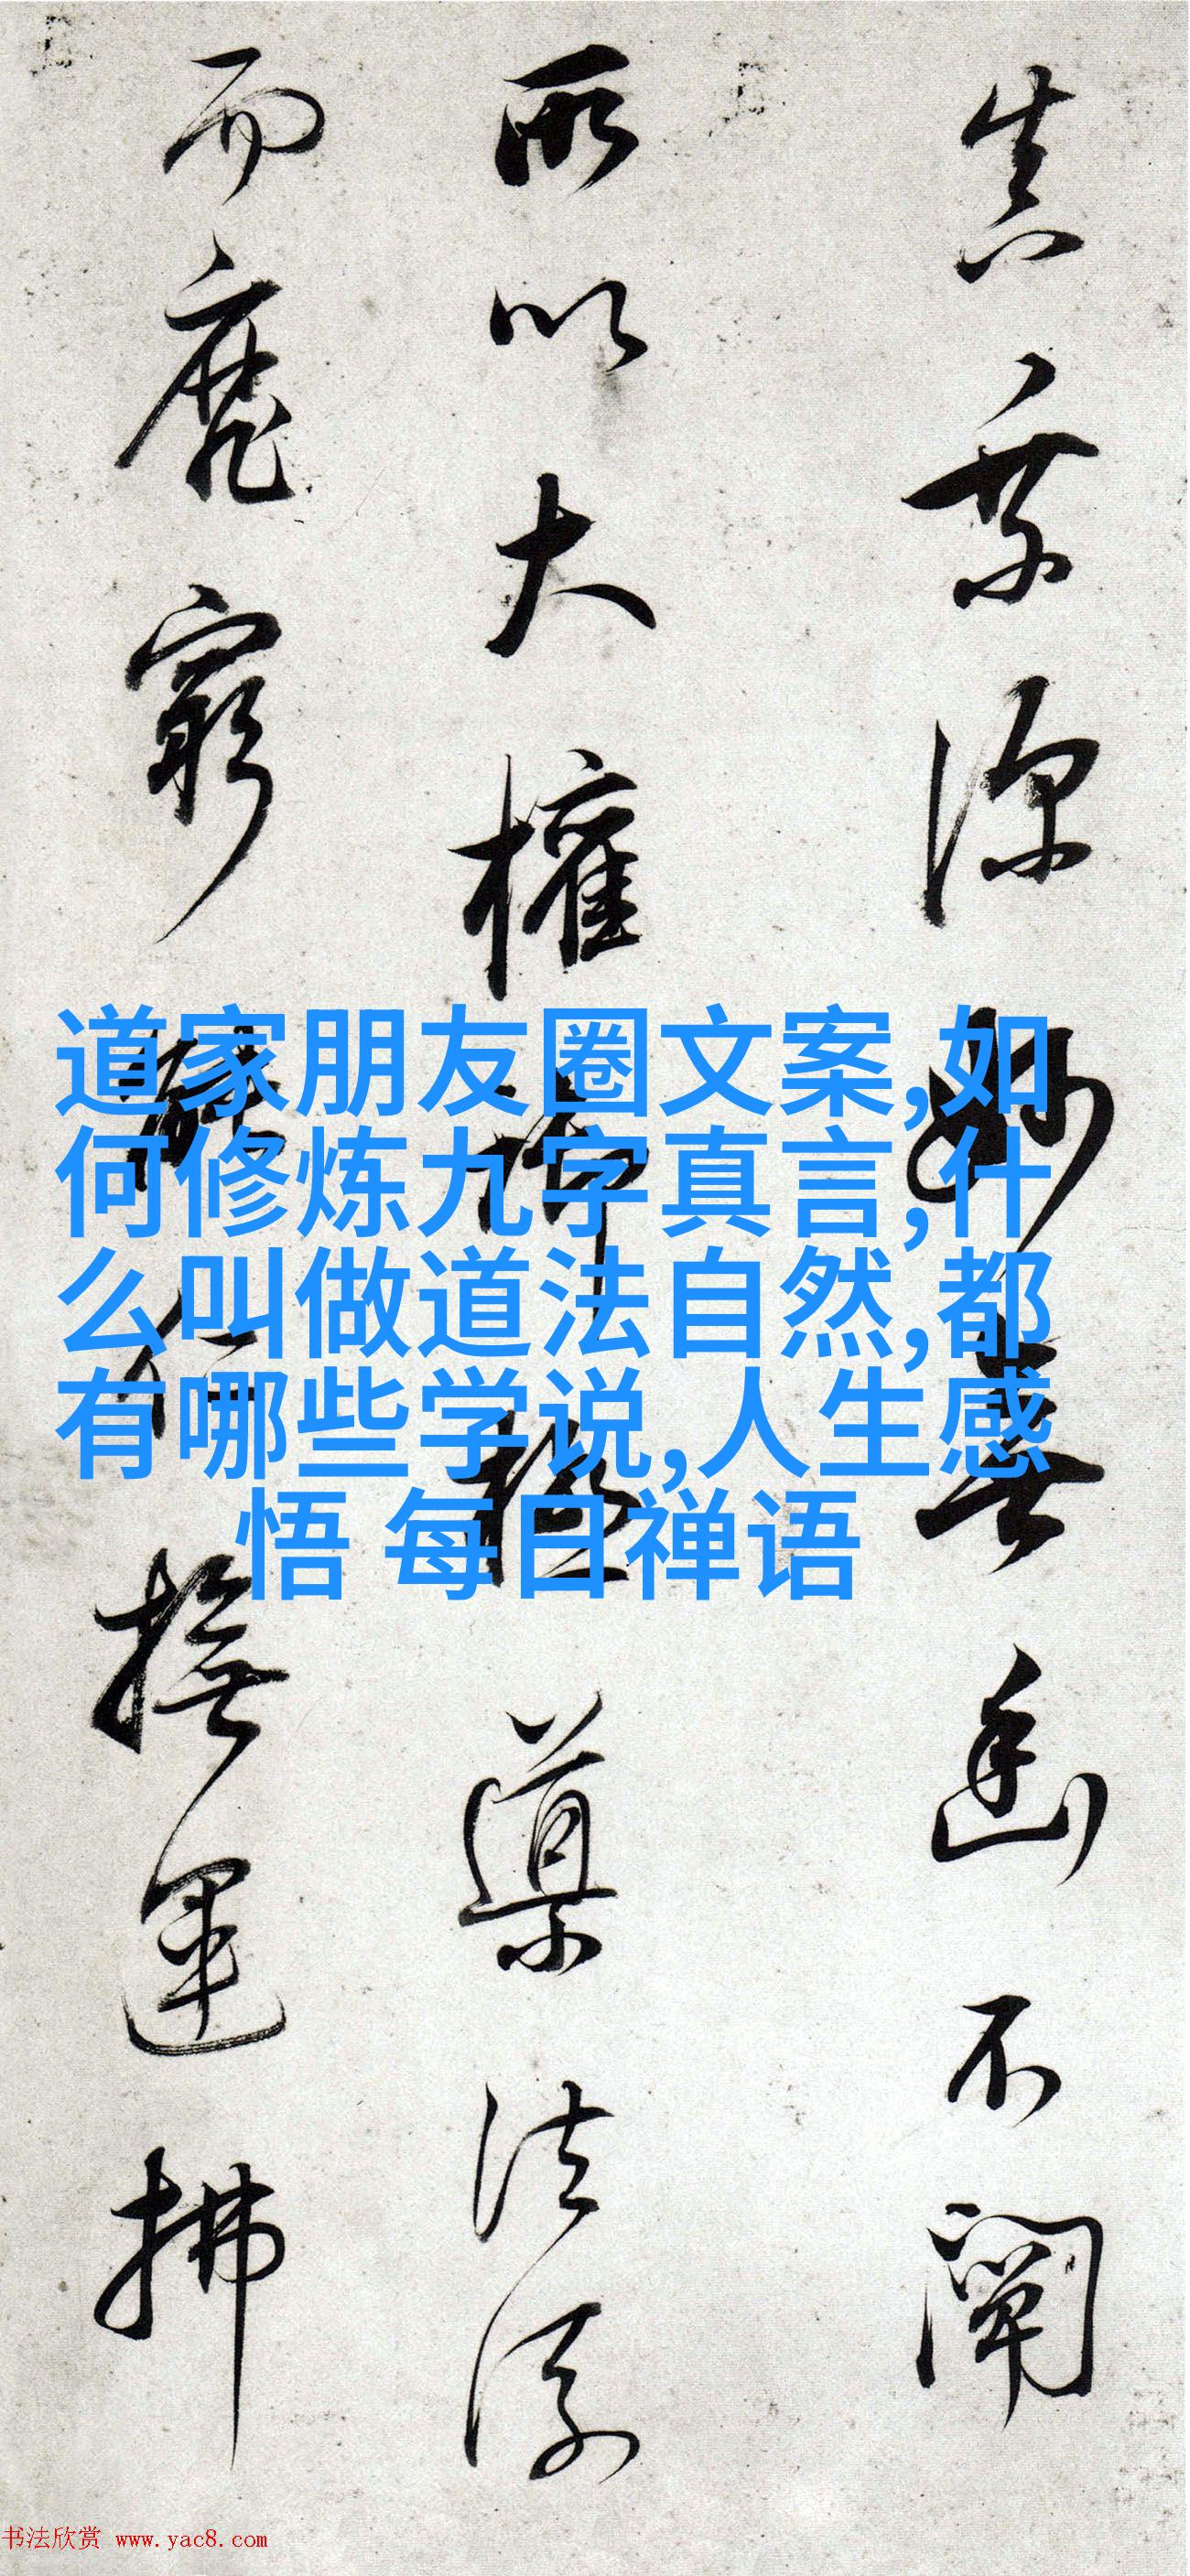 深妙無幽不闡
所以大權御極導法流
而靡窮能仁撫運拂
道家朋友圈文案,如
何修炼九字真言,什
么叫做道法自然,都
有哪些学说,人生感
悟 每日禅语
书法欣赏 www.yac8.com